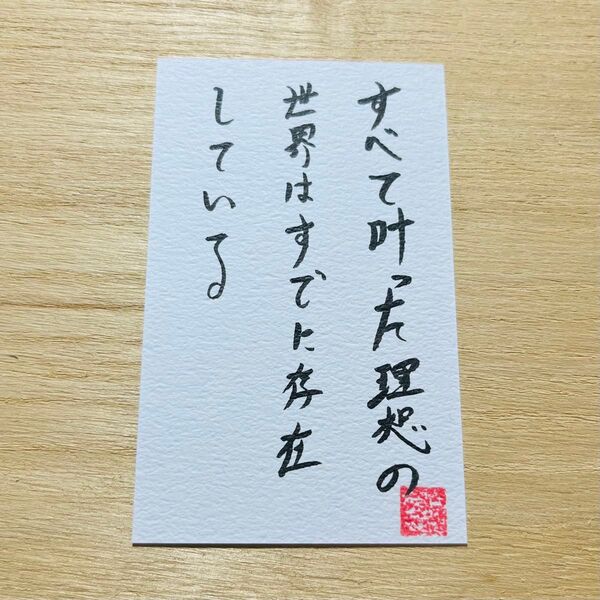 すべて叶った理想の
世界はすでに存在
している